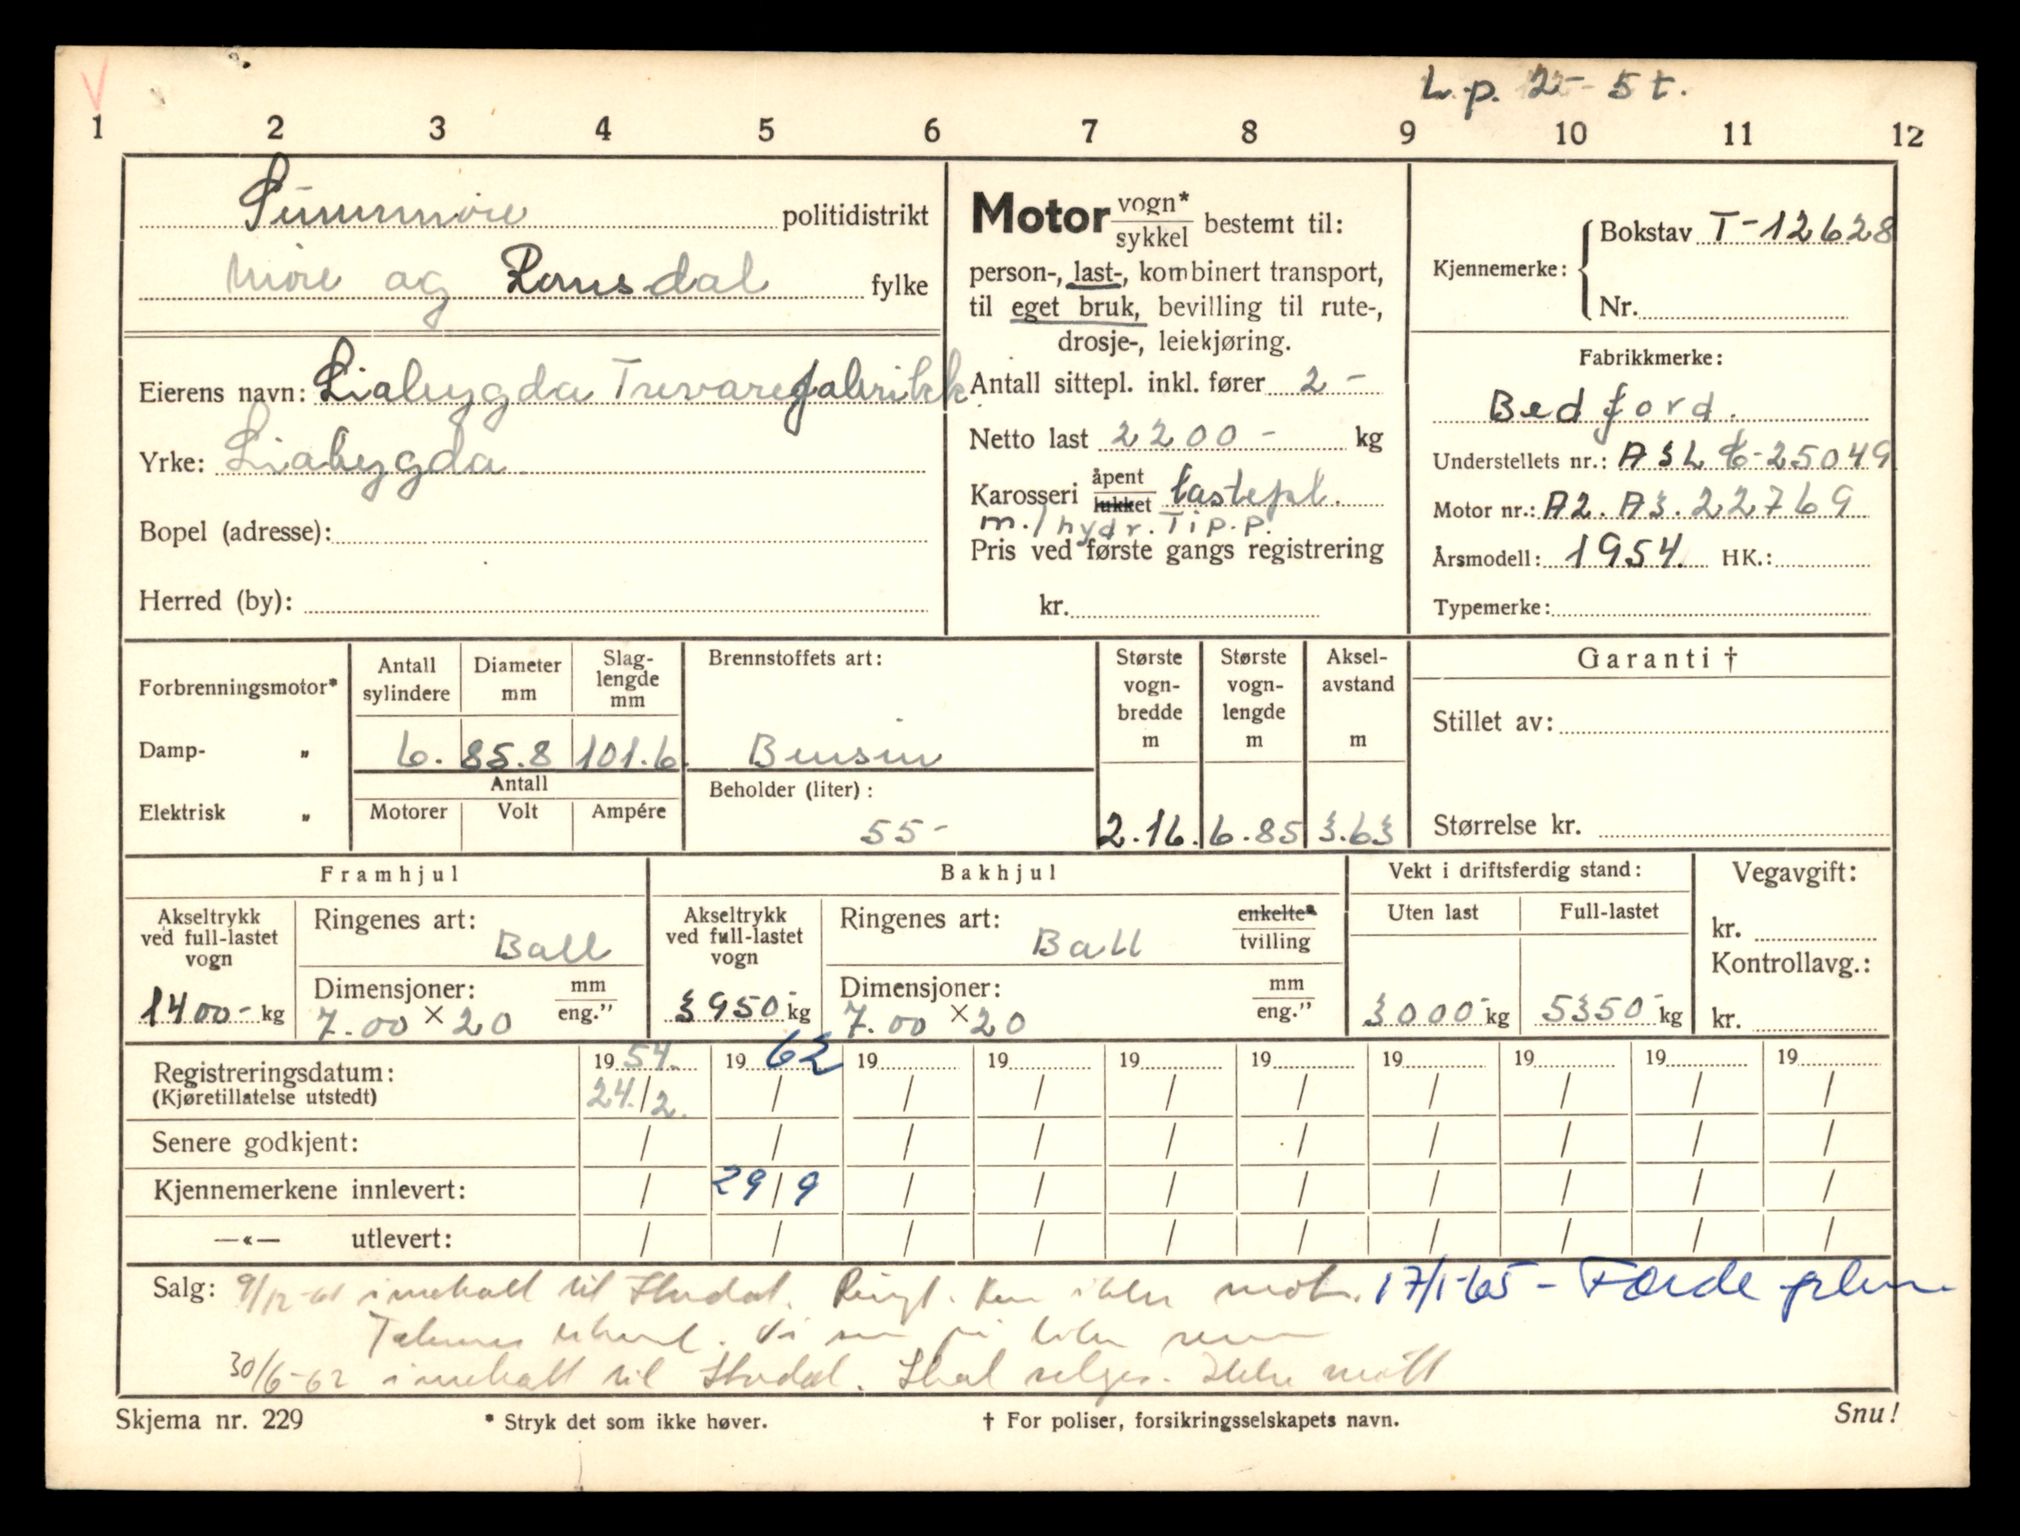 V
L.p. 22-5 t.
1 2 3 4 5 6 7 8 9 10 11 12
Sunnmøre politidistrikt
Møre og Romsdal fylke
Eierens navn: Liabygda Trevarefabrikk
Yrke: Liabygda
Bopel (adresse):
Herred (by):
Motor vogn* sykkel bestemt til:
person-, last-, kombinert transport,
til eget bruk, bevilling til rute-,
drosje-, leiekjøring.
Antall sittepl. inkl. fører 2 -
Netto last 2200 - kg
Karosseri åpent lukket lastepl.
m./hydr. Tipp.
Pris ved første gangs registrering
kr.
Kjennemerke: Bokstav T-12628
Nr.
Fabrikkmerke:
Bedford.
Understellets nr.: A3L 6-25049
Motor nr.: A2. A3. 22769
Årsmodell: 1954. HK.:
Typemerke:
Forbrenningsmotor*
Damp- „
Elektrisk „
Antall sylindere 6.
Diameter mm 85.8
Slag-lengde mm 101.6.
Antall
Motorer Volt Ampére
Brennstoffets art:
Bensin
Beholder (liter):
55-
Største vogn-bredde m 2.16.
Største vogn-lengde m 6.85
Aksel-avstand m 3.63
Garanti †
Stillet av:
Størrelse kr.
Framhjul
Akseltrykk ved full-lastet vogn
1400- kg
Ringenes art:
Ball
Dimensjoner: mm eng.”
7.00 × 20
Bakhjul
Akseltrykk ved full-lastet vogn
3950- kg
Ringenes art: enkelte* tvilling
Ball
Dimensjoner: mm eng.”
7.00 × 20
Vekt i driftsferdig stand:
Uten last Full-lastet
3000- kg 5350- kg
Vegavgift:
kr.
Kontrollavg.:
kr.
Registreringsdatum: 19 54. 19 62 19 19 19 19 19 19 19 19
(Kjøretillatelse utstedt) 24./2. / / / / / / / / /
Senere godkjent: / / / / / / / / / /
Kjennemerkene innlevert: / 29/9 / / / / / / / /
—«— utlevert: / / / / / / / / / /
Salg: 9/12-61 innkalt til Stordal. Ringt. Kan ikke møte. 17/1-65 - Førde
30/6-62 innkalt til Stordal. Skal selges. Ikke møtt
Skjema nr. 229 * Stryk det som ikke høver. † For poliser, forsikringsselskapets navn. Snu!